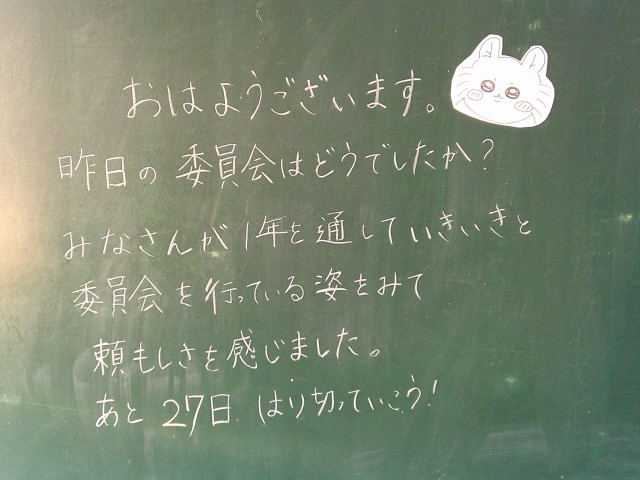 おはようございます。
昨日の委員会はどうでしたか?
みなさんが1年を通していきいきと
委員会を行っている姿をみて
頼もしさを感じました。
あと27日 はり切っていこう!